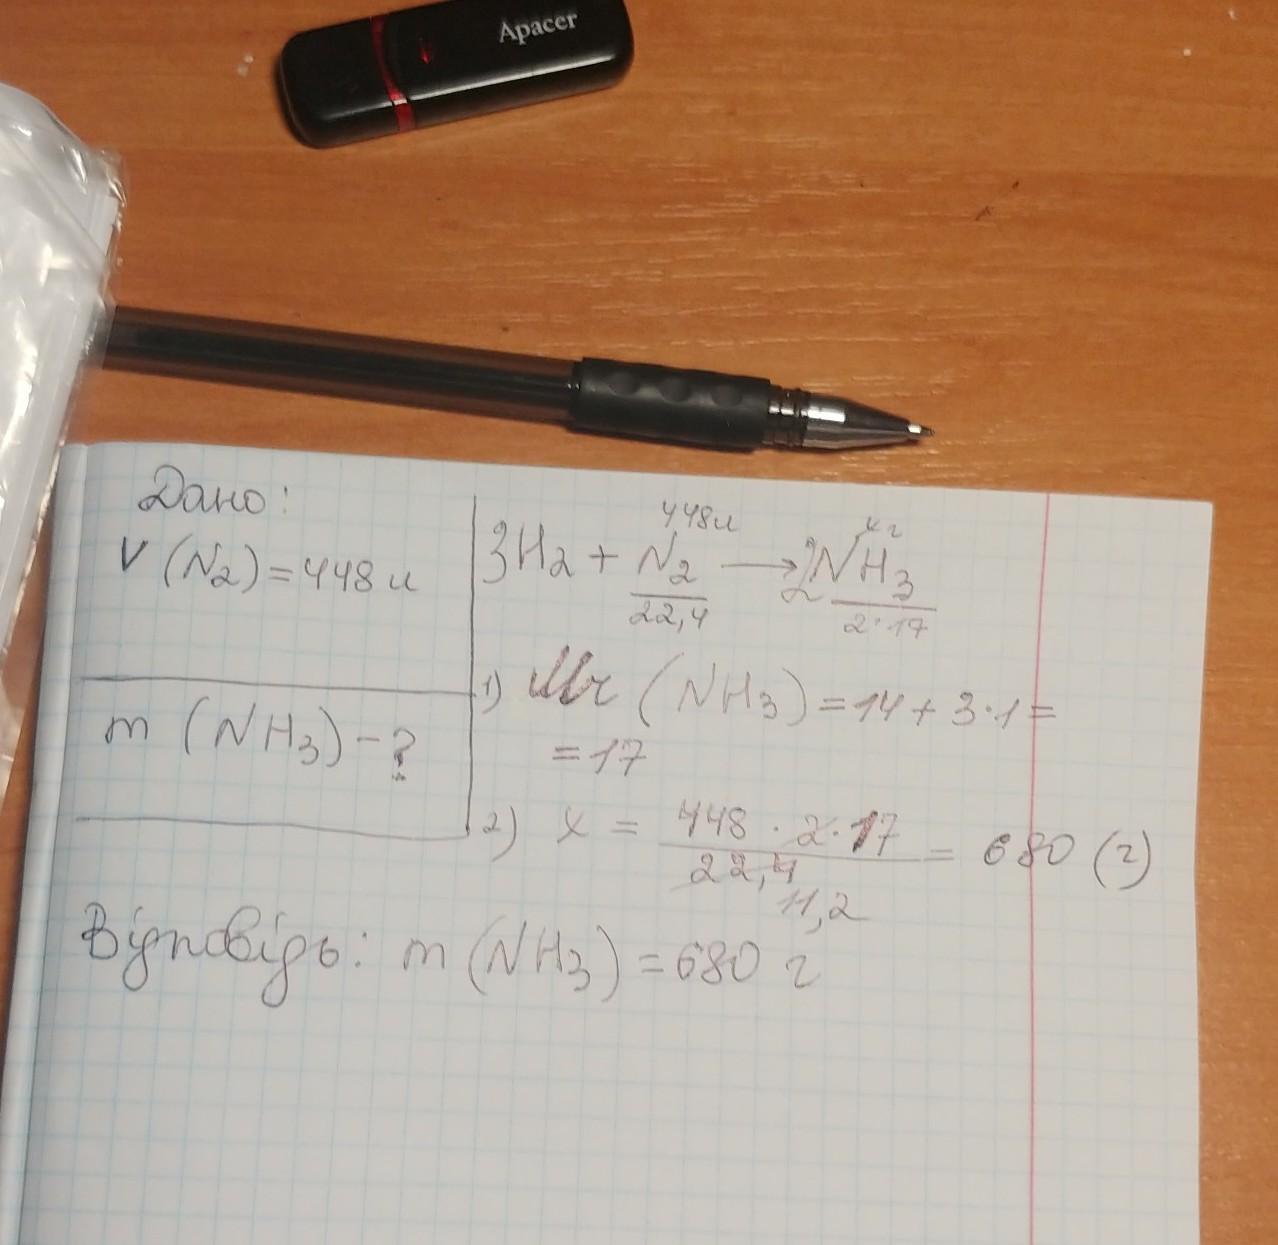 Apacer
Дано:
V (N2) = 448 л
m (NH3) - ?
448л хг
3H2 + N2 → 2NH3
22,4 2·17
1) Mr (NH3) = 14 + 3·1 =
= 17
2) x = 448 · 2 · 17 / 22,4 = 680 (г)
11,2
Відповідь: m (NH3) = 680 г